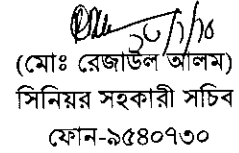 ২০/১/১৫
(মোঃ রেজাউল আলম)
সিনিয়র সহকারী সচিব
ফোন-৯৫৪০৭৩০